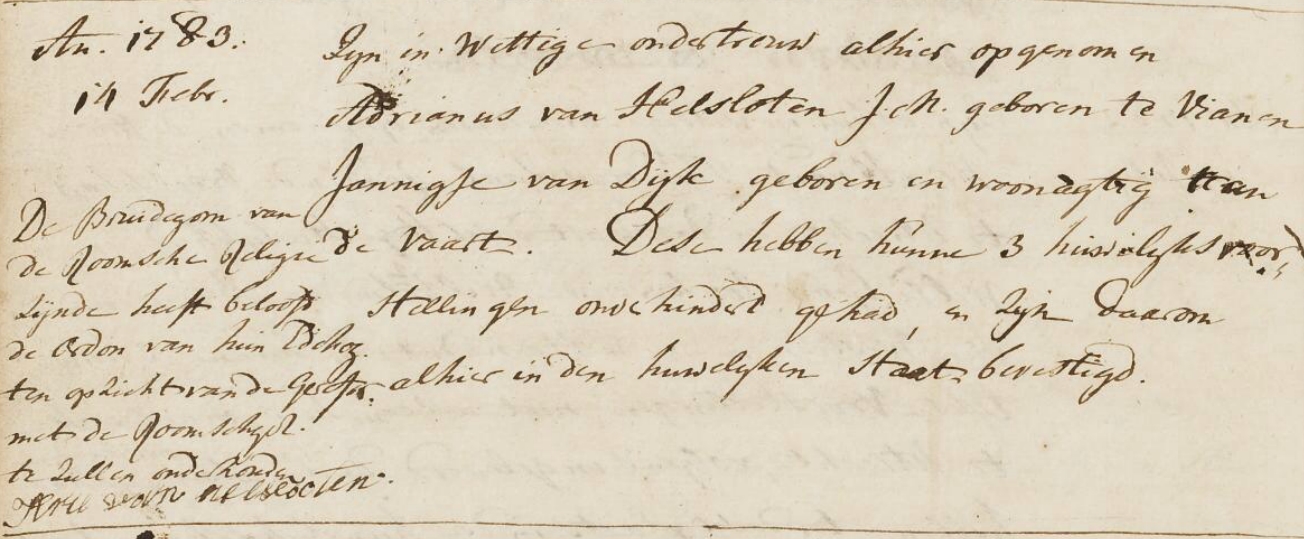 An. 1783.
14 Febr.
Zyn in Wettige ondertrouw alhier opgenomen
Adrianus van Helsloten J.M. geboren te Vianen
Jannigje van Dijk geboren en woonagtig aan
de Vaart. Dese hebben hunne 3 huwelyks voor
stellingen onverhindert gehad, en zijn daarom
alhier in den huwelyken Staat bevestigd.
De Bruidegom van
de Roomsche Religie
zijnde heeft belooft
de ordon van hun Ed: hog.
ten opzicht van de Geref.
met de Roomschgez.
te zullen onderhouden
van Helslooten.